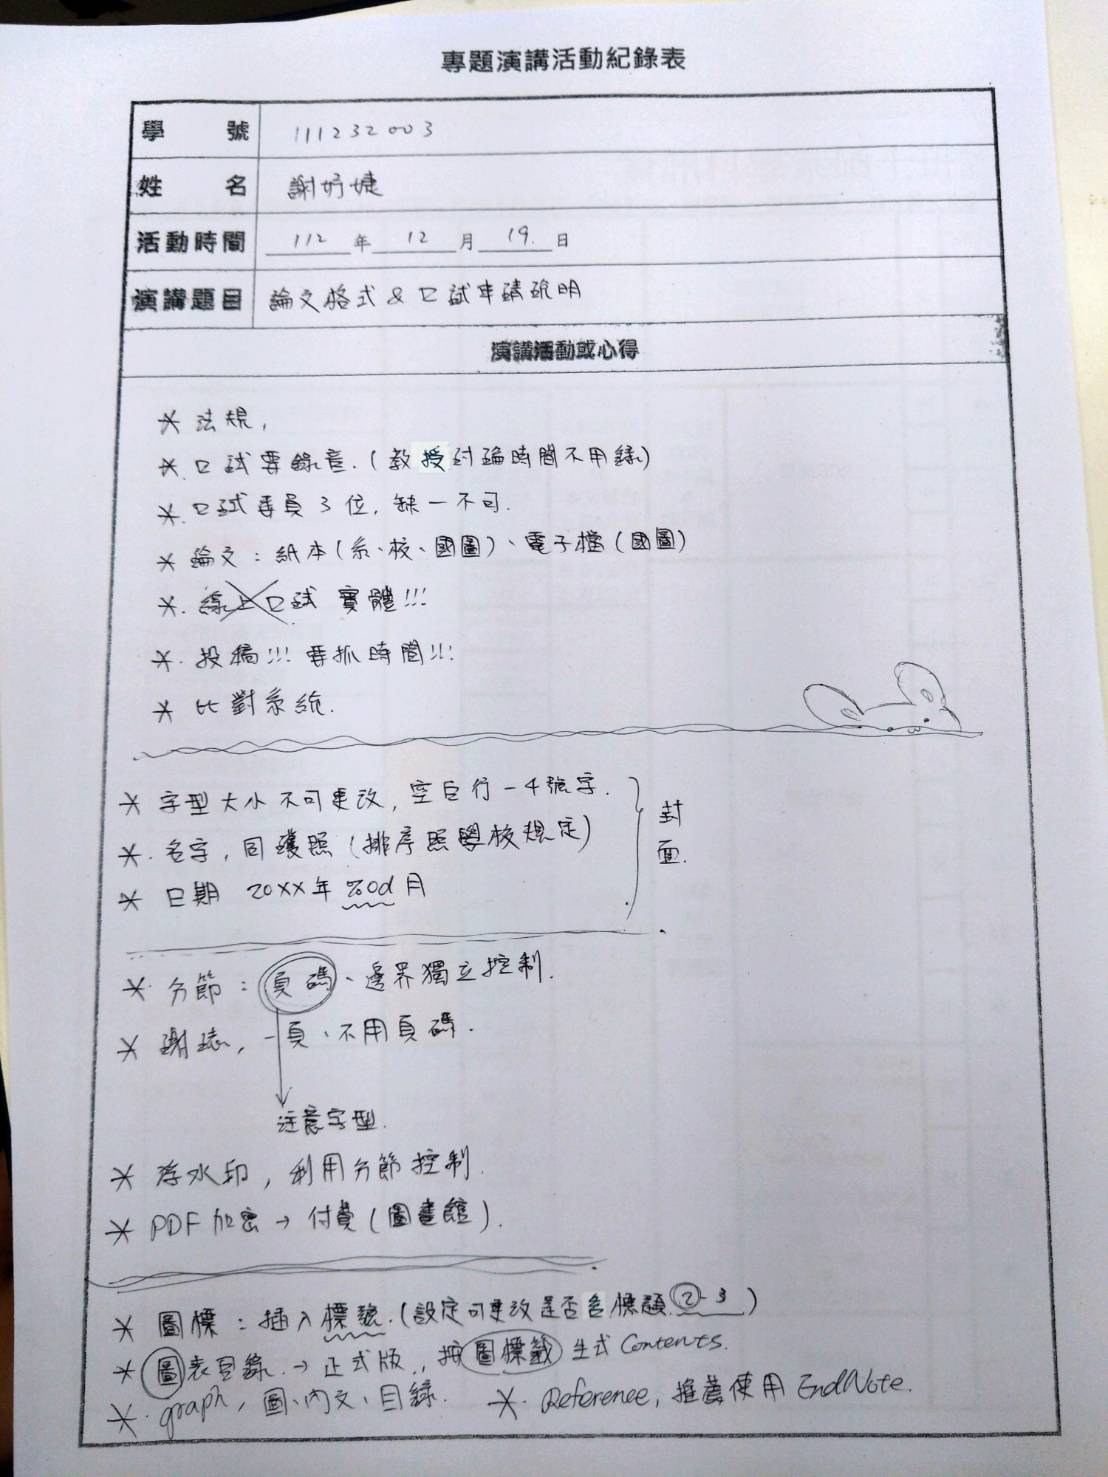 專題演講活動紀錄表
學 號 111232003
姓 名 謝妤婕
活動時間 112 年 12 月 19. 日
演講題目 論文格式 & 口試申請說明
演講活動或心得
* 法規,
* 口試要錄音.(教授討論時間不用錄)
* 口試委員 3 位, 缺一不可.
* 論文:紙本(系、校、國圖)、電子檔(國圖)
* 線上口試 實體!!!
* 投稿!!! 要抓時間!!!
* 比對系統.
* 字型大小不可更改, 空白行-4號字.
* 名字, 同護照(排序照學校規定)
* 日期 20XX年 月
封面.
* 分節:頁碼、邊界獨立控制.
* 謝誌, 一頁、不用頁碼.
注意字型.
* 浮水印, 利用分節控制.
* PDF加密→付費(圖書館).
* 圖標:插入標號.(設定可更改是否含標題 2-3)
* 圖表目錄.→正式版, 按圖標籤生式 Contents.
* graph, 圖、內文、目錄. * Reference, 推薦使用 EndNote.